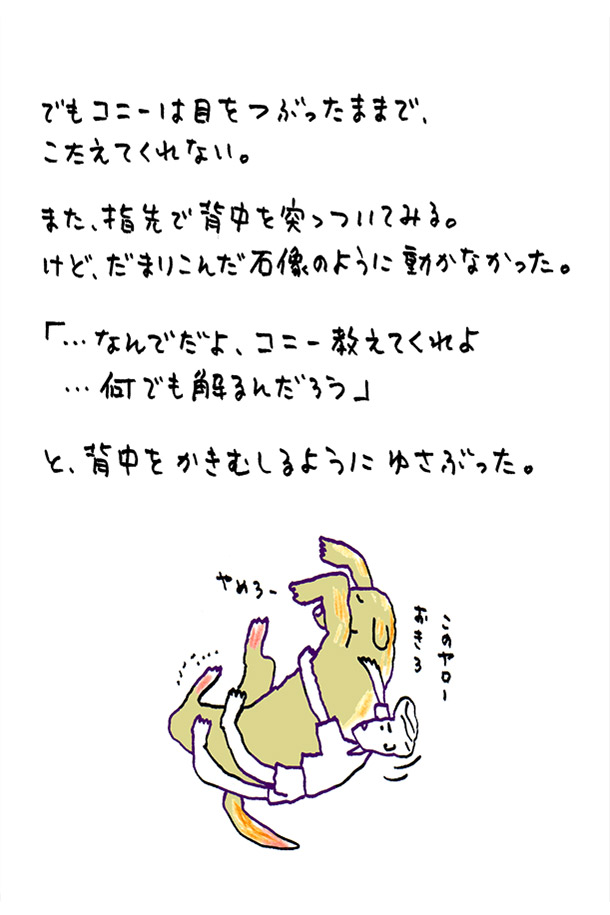 でもコニーは目をつぶったままで、
こたえてくれない。
また、指先で背中を突っついてみる。
けど、だまりこんだ石像のように動かなかった。
「…なんでだよ、コニー教えてくれよ
…何でも解るんだろう」
と、背中をかきむしるようにゆさぶった。
やめろー
このヤロー
おきろ